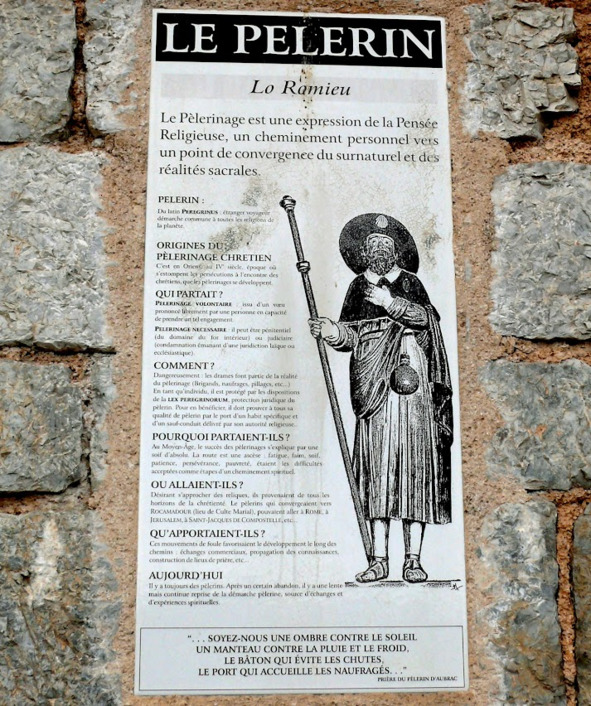 LE PELERIN
Lo Romieu
Le Pèlerinage est une expression de la Pensée
Religieuse, un cheminement personnel vers
un point de convergence du surnaturel et des
réalités sacrales.
PELERIN :
Du latin PEREGRINUS : étranger voyageur
démarche commune à toutes les religions de
la planète.
ORIGINES DU
PÈLERINAGE CHRETIEN
C'est en Orient au IVe siècle, époque où
s'estompent les persécutions à l'encontre des
chrétiens, que les pèlerinages se développent.
QUI PARTAIT ?
PELERINAGE VOLONTAIRE : issu d'un vœu
prononcé librement par une personne en capacité
de prendre un tel engagement.
PELERINAGE NECESSAIRE : il peut être pénitentiel
(du domaine du for intérieur) ou judiciaire
(condamnation émanant d'une juridiction laïque ou
ecclésiastique).
COMMENT ?
Dangereusement : les drames font partie de la réalité
du pèlerinage (Brigands, naufrages, pillages, etc...)
En tant qu'individu, il est protégé par les dispositions
de la LEX PEREGRINORUM, protection juridique du
pèlerin. Pour en bénéficier, il doit prouver à tous sa
qualité de pèlerin par le port d'un habit spécifique et
d'un sauf-conduit délivré par son autorité religieuse.
POURQUOI PARTAIENT-ILS ?
Au Moyen-Age, le succès des pèlerinages s'explique par une
soif d'absolu. La route est une ascèse : fatigue, faim, soif,
patience, persévérance, pauvreté, étaient les difficultés
acceptées comme étapes d'un cheminement spirituel.
OU ALLAIENT-ILS ?
Désirant s'approcher des reliques, ils provenaient de tous les
horizons de la chrétienté. Le pèlerins qui convergeaient vers
ROCAMADOUR (lieu de Culte Marial), pouvaient aller à ROME, à
JERUSALEM, à SAINT-JACQUES DE COMPOSTELLE, etc.
QU'APPORTAIENT-ILS ?
Ces mouvements de foule favorisaient le développement le long des
chemins : échanges commerciaux, propagation des connaissances,
construction de lieux de prière, etc...
AUJOURD'HUI
Il y a toujours des pèlerins. Après un certain abandon, il y a une lente
mais continue reprise de la démarche pèlerine, source d'échanges et
d'expériences spirituelles.
"... SOYEZ-NOUS UNE OMBRE CONTRE LE SOLEIL
UN MANTEAU CONTRE LA PLUIE ET LE FROID,
LE BÂTON QUI ÉVITE LES CHUTES,
LE PORT QUI ACCUEILLE LES NAUFRAGÉS. . ."
PRIÈRE DU PÈLERIN D'AUBRAC